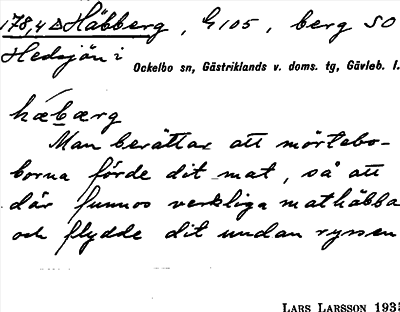 178,4 D Häbberg, G105, berg SO
Hedsjön i
Ockelbo sn, Gästriklands v. doms. tg, Gävleb. l.
hæbærg
Man berättar att mörtebo-
borna förde dit mat, så att
där funnos verkliga mathäbba
och flydde dit undan ryssen
LARS LARSSON 193